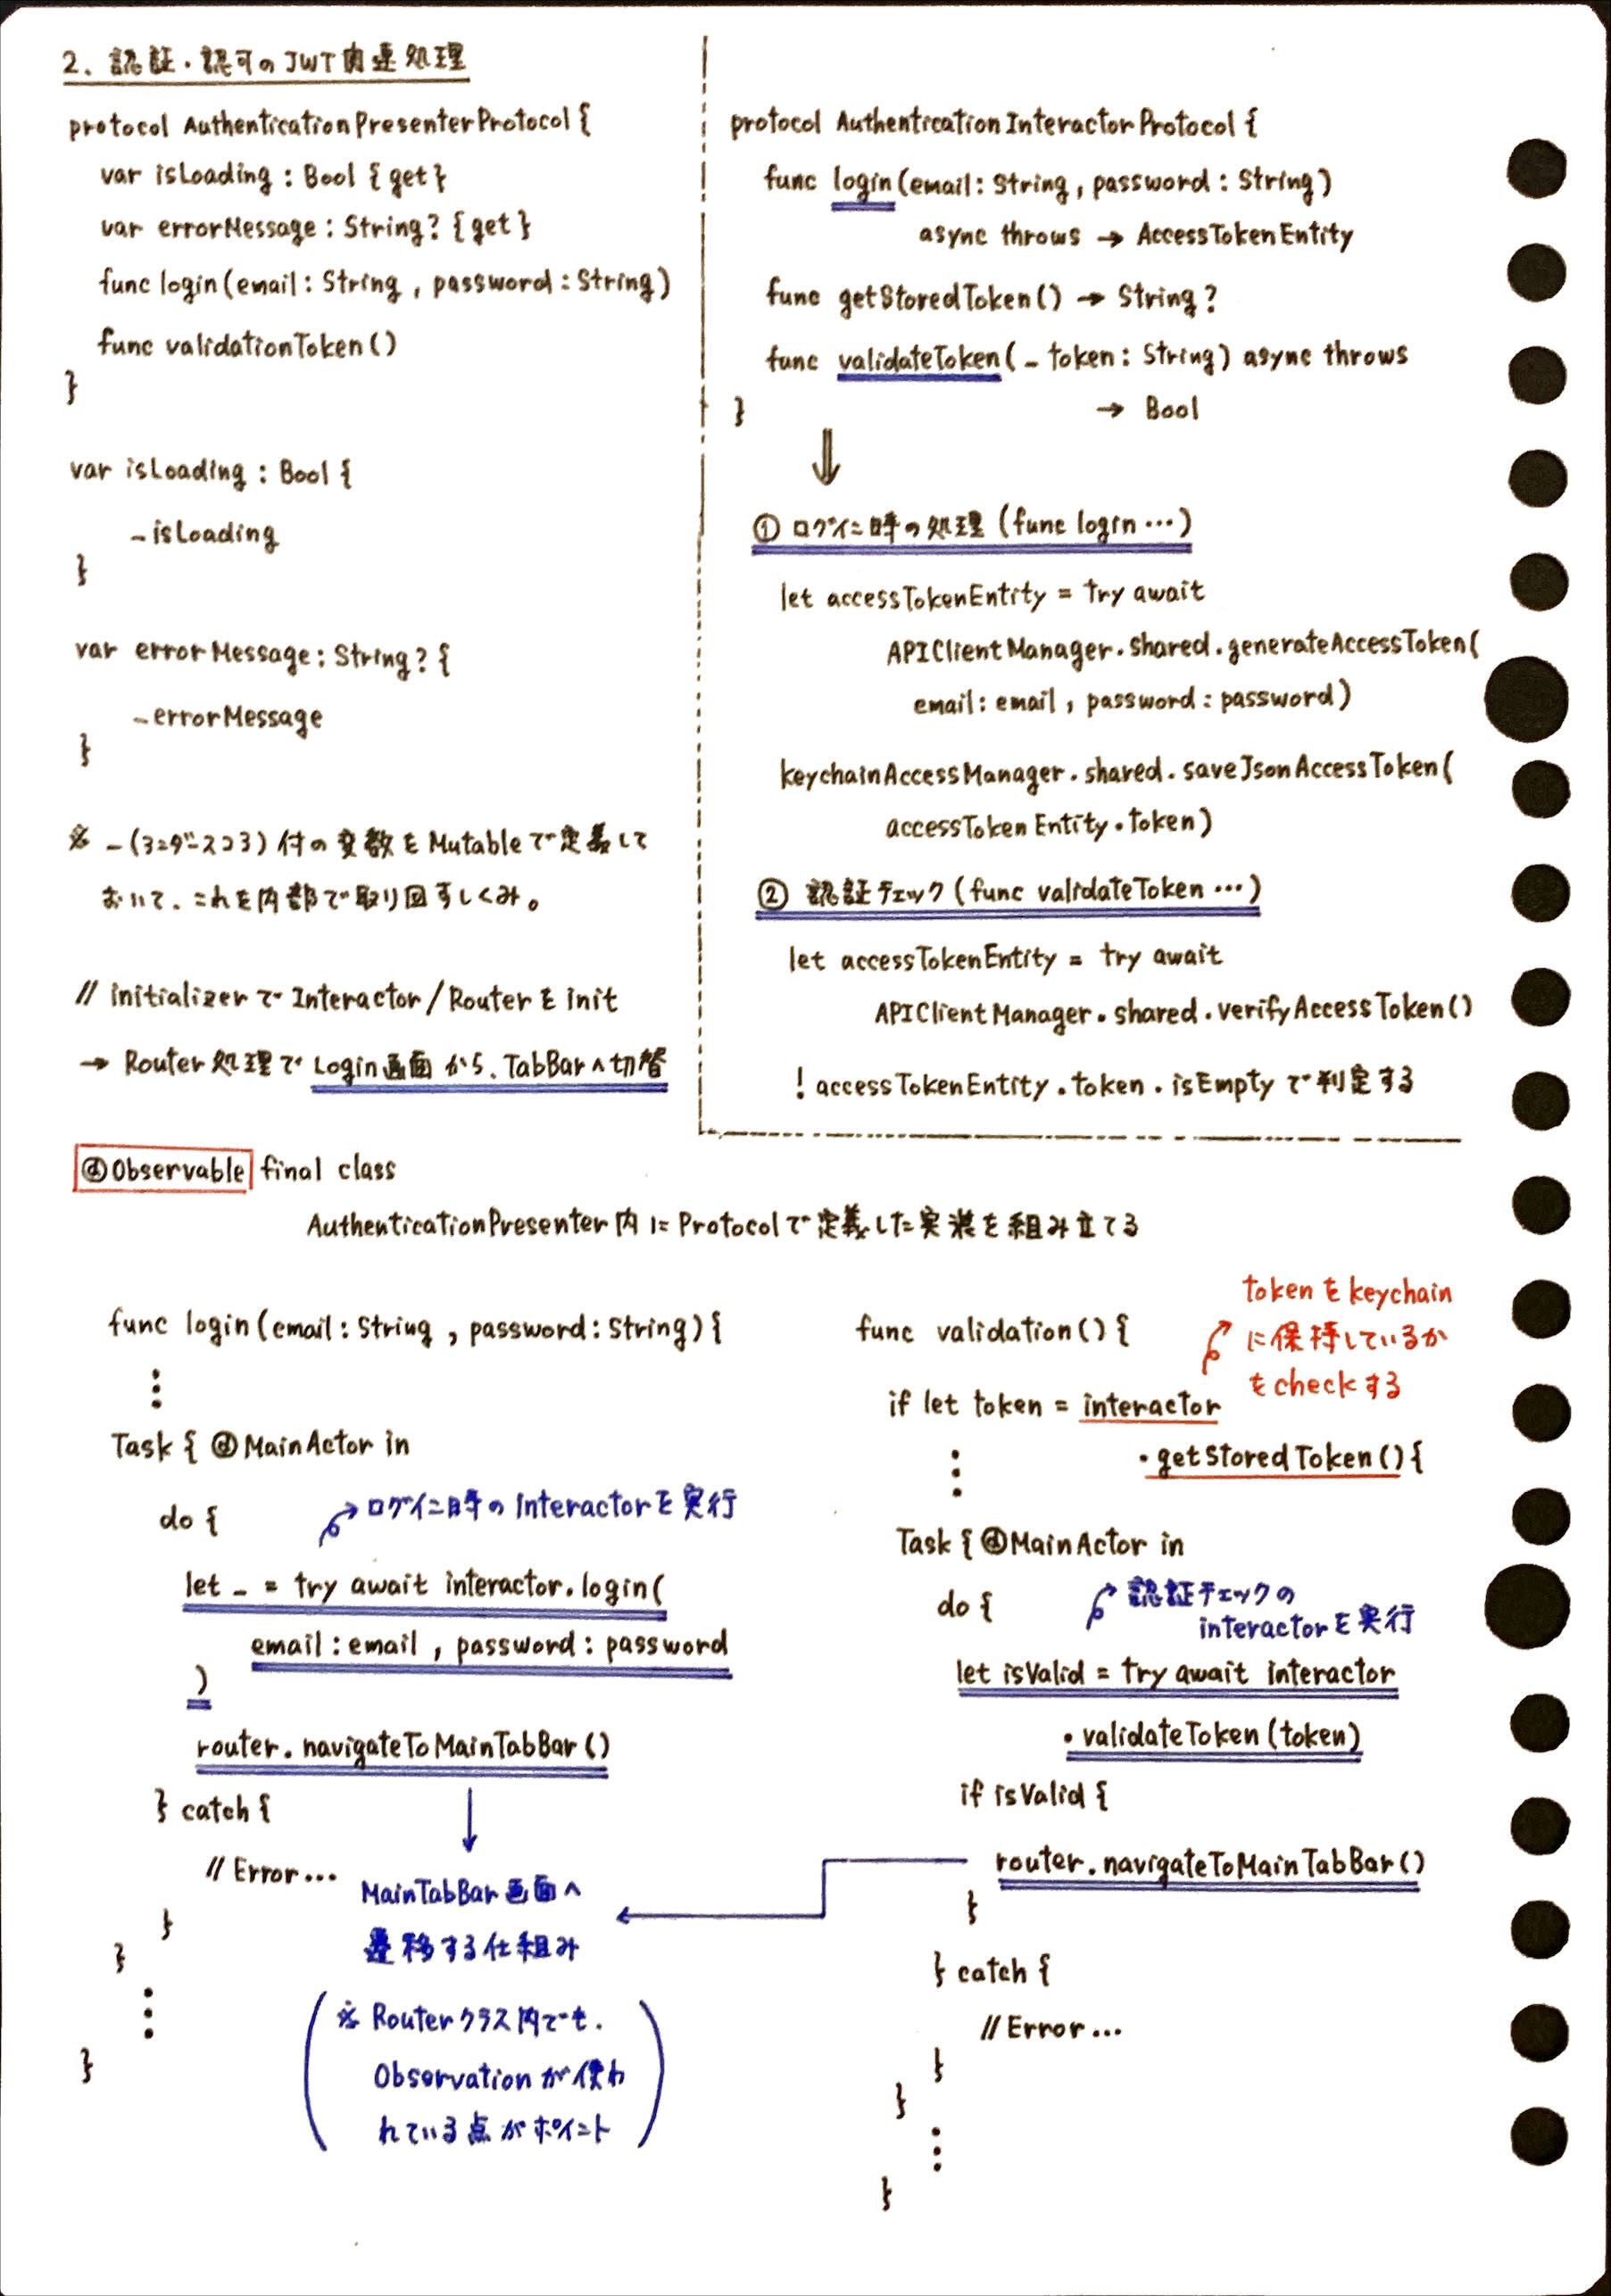 2. 認証・認可のJWT関連処理
protocol AuthenticationPresenterProtocol {
var isLoading : Bool { get }
var errorMessage : String? { get }
func login(email : String , password : String)
func validationToken()
}
var isLoading : Bool {
_isLoading
}
var errorMessage : String? {
_errorMessage
}
※ _(アンダースコア)付の変数をMutableで定義して
おいて、これを内部で取り回すしくみ。
// initializerでInteractor/Routerをinit
→ Router処理でLogin画面から、TabBarへ切替
protocol AuthenticationInteractorProtocol {
func login(email : String , password : String)
async throws → AccessTokenEntity
func getStoredToken() → String?
func validateToken( _ token : String) async throws
→ Bool
}
⇓
① ログイン時の処理 (func login …)
let accessTokenEntity = try await
APIClientManager.shared.generateAccessToken(
email: email , password : password)
keychainAccessManager.shared.saveJsonAccessToken(
accessTokenEntity.token)
② 認証チェック (func validateToken …)
let accessTokenEntity = try await
APIClientManager.shared.verifyAccessToken()
! accessTokenEntity.token.isEmpty で判定する
@Observable final class
AuthenticationPresenter内にProtocolで定義した実装を組み立てる
func login(email : String , password : String) {
⋮
Task { @MainActor in
do {
ログイン時のInteractorを実行
let _ = try await interactor.login(
email : email , password : password
)
router.navigateToMainTabBar()
} catch {
// Error…
}
}
⋮
}
MainTabBar画面へ
遷移する仕組み
※ Routerクラス内でも、
Observationが使わ
れている点がポイント
func validation() {
tokenをkeychain
に保持しているか
をcheckする
if let token = interactor
.getStoredToken() {
⋮
Task { @MainActor in
do {
認証チェックの
interactorを実行
let isValid = try await interactor
.validateToken(token)
if isValid {
router.navigateToMainTabBar()
}
} catch {
// Error…
}
}
⋮
}